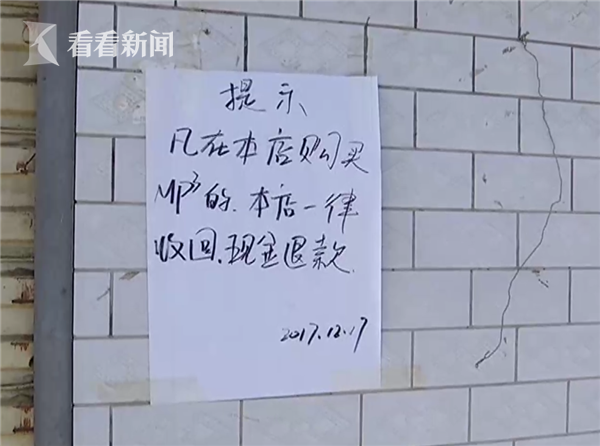 看看新闻
提示
凡在本店购买
MP3的.本店一律
收回.现金退款.
2017.12.17